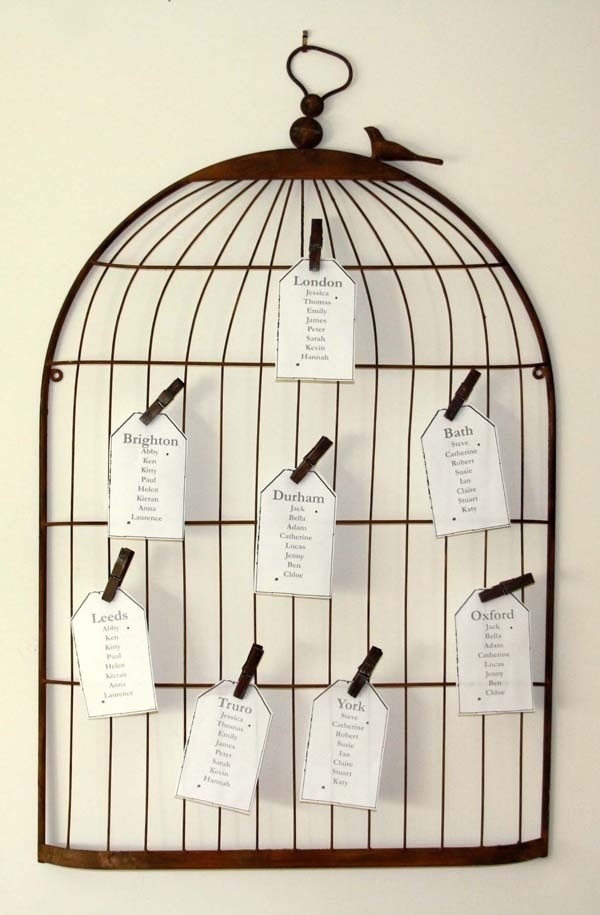 London
Jessica
Thomas
Emily
James
Peter
Sarah
Kevin
Hannah
Brighton
Abby
Ken
Kitty
Paul
Helen
Kieran
Anna
Laurence
Bath
Steve
Catherine
Robert
Susie
Ian
Claire
Stuart
Katy
Durham
Jack
Bella
Adam
Catherine
Lucas
Jenny
Ben
Chloe
Leeds
Abby
Ken
Kitty
Paul
Helen
Kieran
Anna
Laurence
Oxford
Jack
Bella
Adam
Catherine
Lucas
Jenny
Ben
Chloe
Truro
Jessica
Thomas
Emily
James
Peter
Sarah
Kevin
Hannah
York
Steve
Catherine
Robert
Susie
Ian
Claire
Stuart
Katy